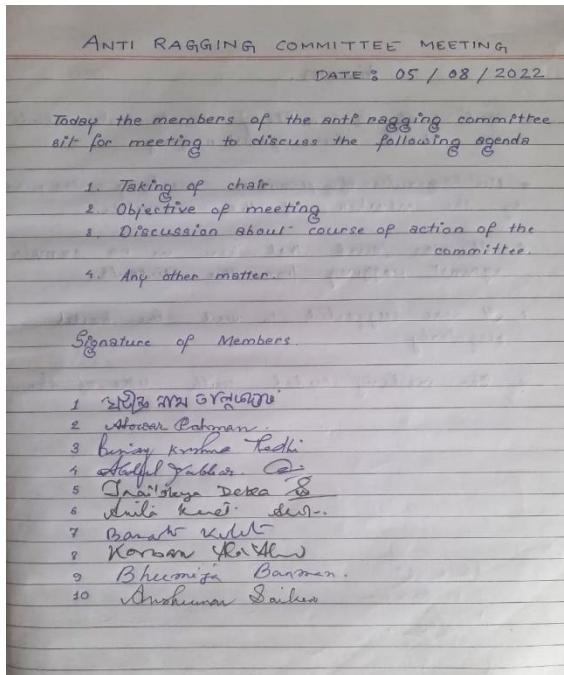 ANTI RAGGING COMMITTEE MEETING
DATE : 05 / 08 / 2022
Today the members of the anti ragging committee
sit for meeting to discuss the following agenda
1. Taking of chair
2. Objective of meeting
3. Discussion about course of action of the
committee.
4. Any other matter.
Signature of Members.
1
2 Atowar Rahman.
3 Krishna
4
5 Trailokya Deka
6 Anita
7
8
9 Bhumija Barman.
10 Anshuman Saikia